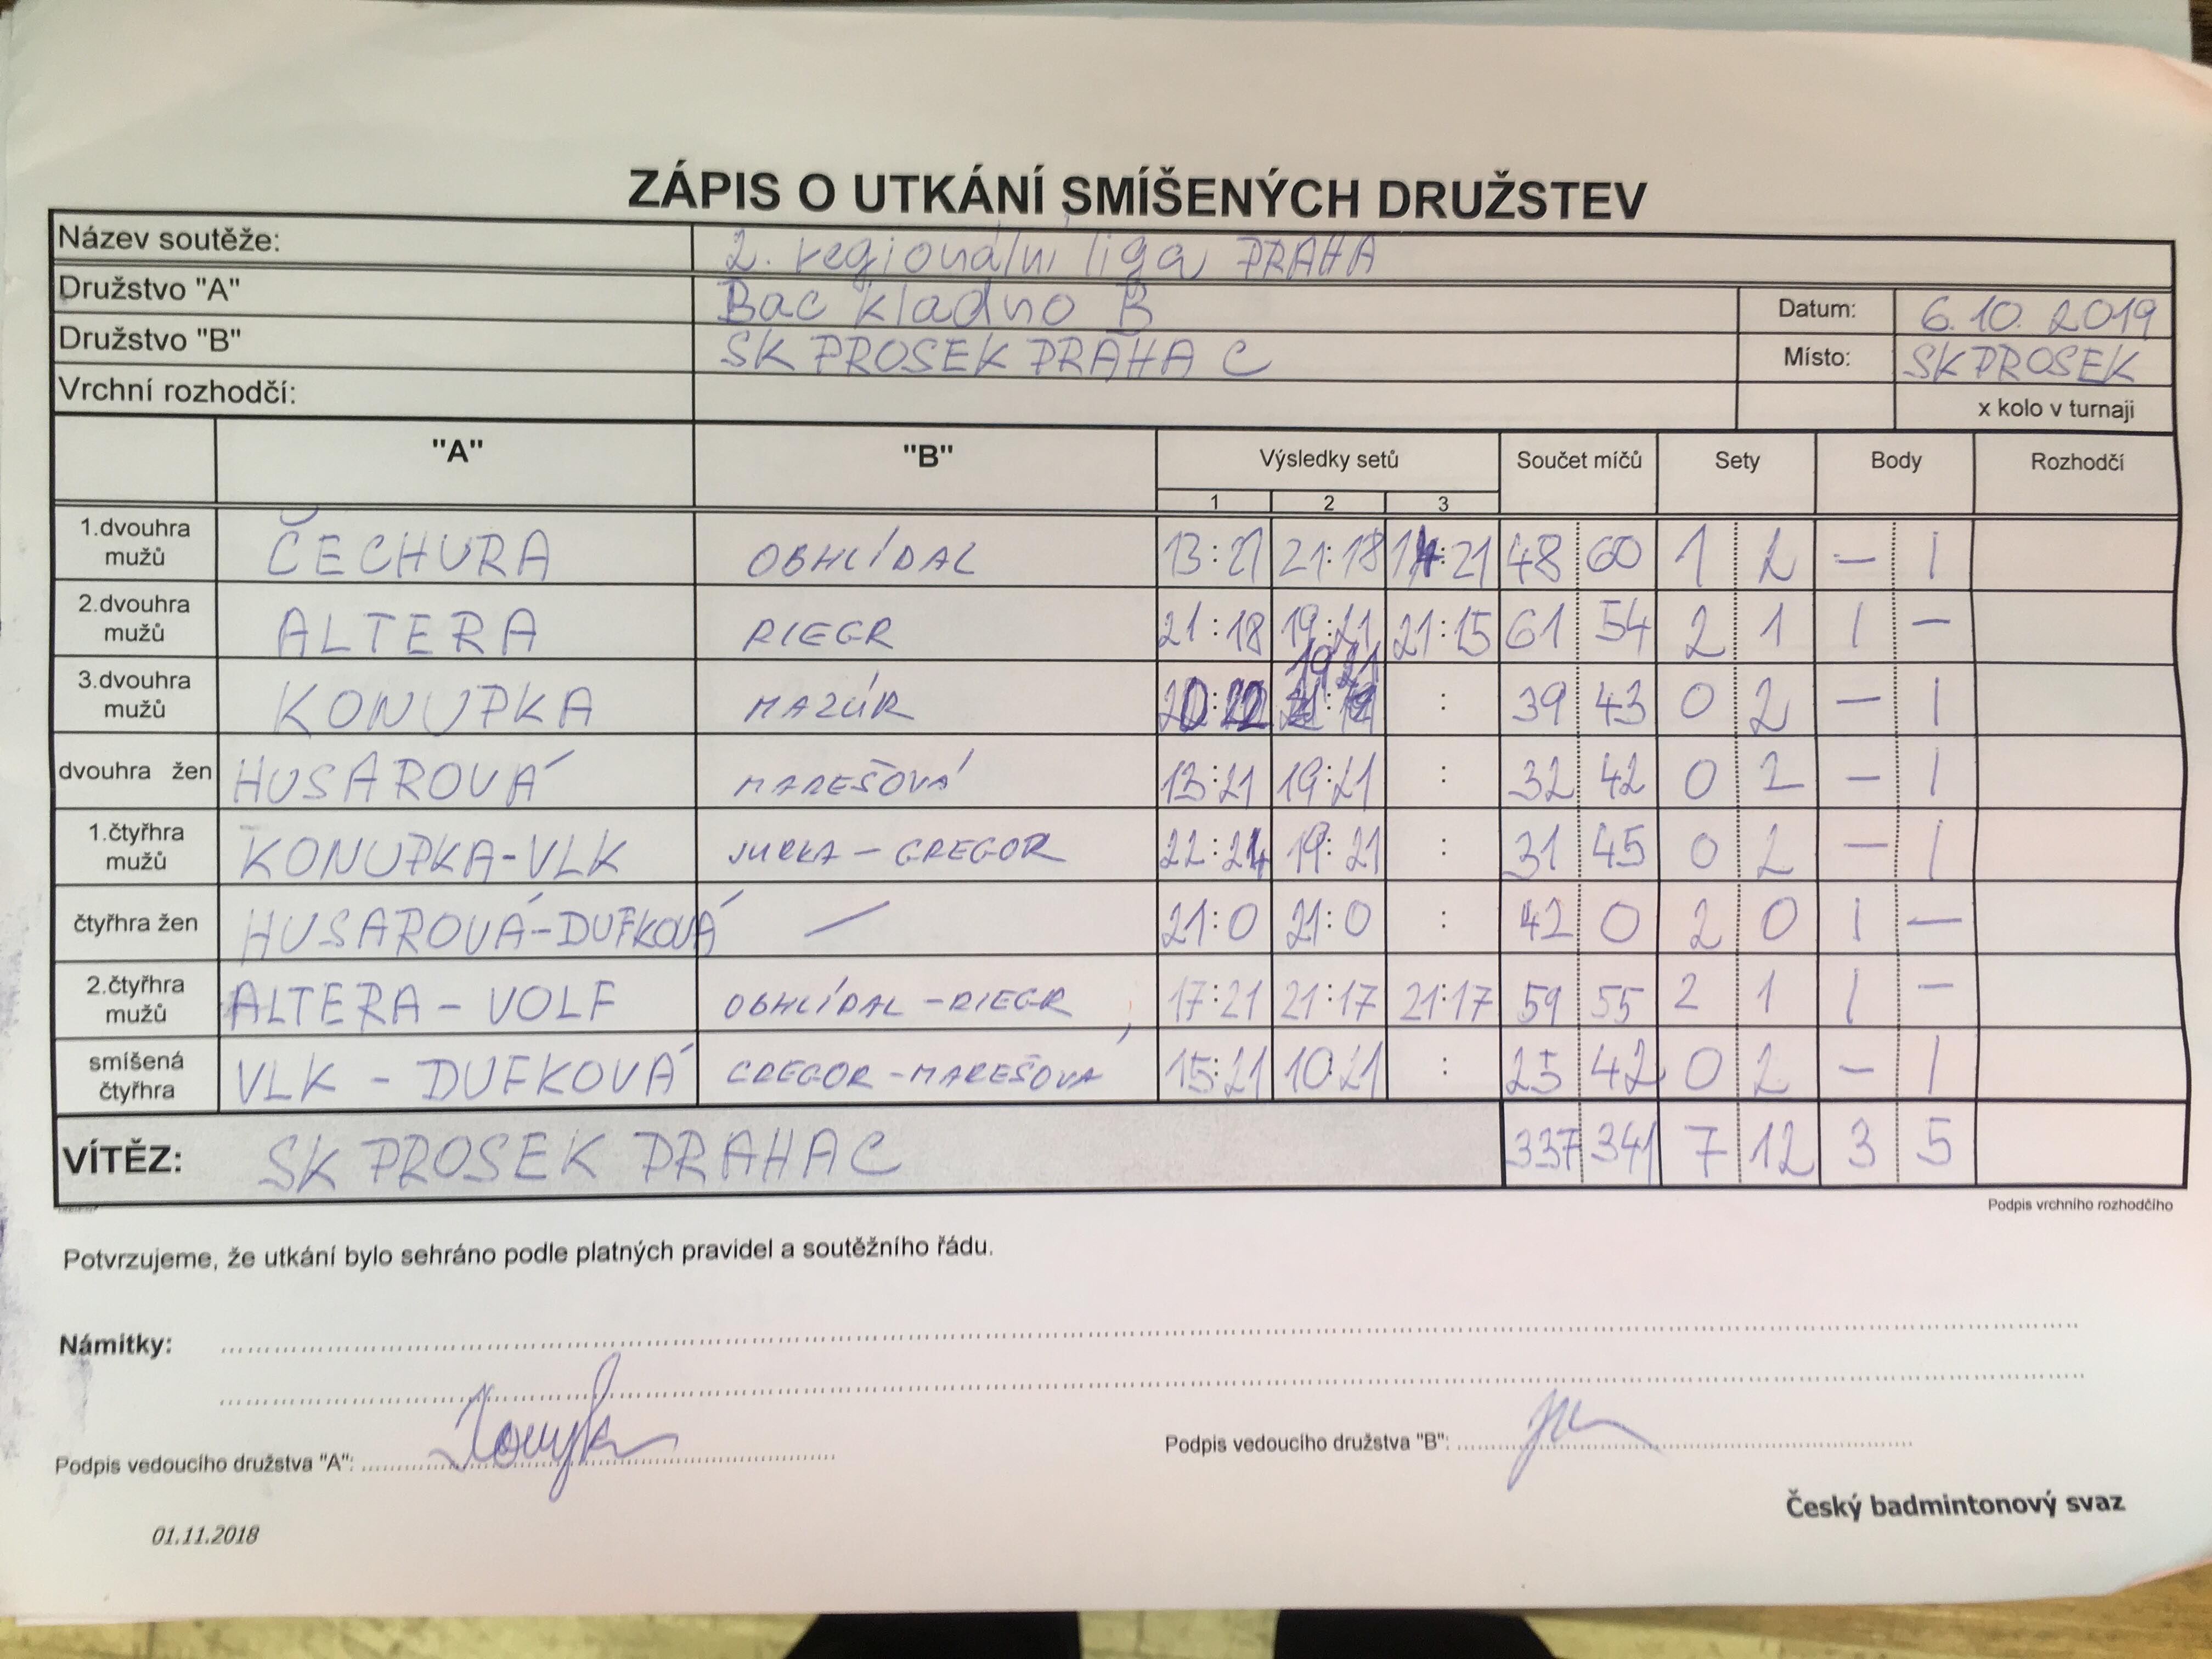 ZÁPIS O UTKÁNÍ SMÍŠENÝCH DRUŽSTEV
Název soutěže: 2. regionální liga PRAHA
Družstvo "A" Bac kladno B Datum: 6.10. 2019
Družstvo "B" SK PROSEK PRAHA C Místo: SK PROSEK
Vrchní rozhodčí: x kolo v turnaji
"A" "B" Výsledky setů Součet míčů Sety Body Rozhodčí
1 2 3
1.dvouhra mužů ČECHURA OBHLÍDAL 13:21 21:18 14:21 48 60 1 2 – 1
2.dvouhra mužů ALTERA RIEGR 21:18 19:21 21:15 61 54 2 1 1 –
3.dvouhra mužů KONUPKA MAZÚR 20:22 19 21 : 39 43 0 2 – 1
dvouhra žen HUSAROVÁ MAREŠOVÁ 13:21 19:21 : 32 42 0 2 – 1
1.čtyřhra mužů KONUPKA-VLK JURKA – GREGOR 22:24 19:21 : 31 45 0 2 – 1
čtyřhra žen HUSAROVÁ-DUFKOVÁ — 21:0 21:0 : 42 0 2 0 1 –
2.čtyřhra mužů ALTERA – VOLF OBHLÍDAL – RIEGR 17:21 21:17 21:17 59 55 2 1 1 –
smíšená čtyřhra VLK – DUFKOVÁ GREGOR – MAREŠOVA 15:21 10:21 : 25 42 0 2 – 1
VÍTĚZ: SK PROSEK PRAHA C 337 341 7 12 3 5
Podpis vrchního rozhodčího
Potvrzujeme, že utkání bylo sehráno podle platných pravidel a soutěžního řádu.
Námitky:
Podpis vedoucího družstva "A": Podpis vedoucího družstva "B":
Český badmintonový svaz
01.11.2018